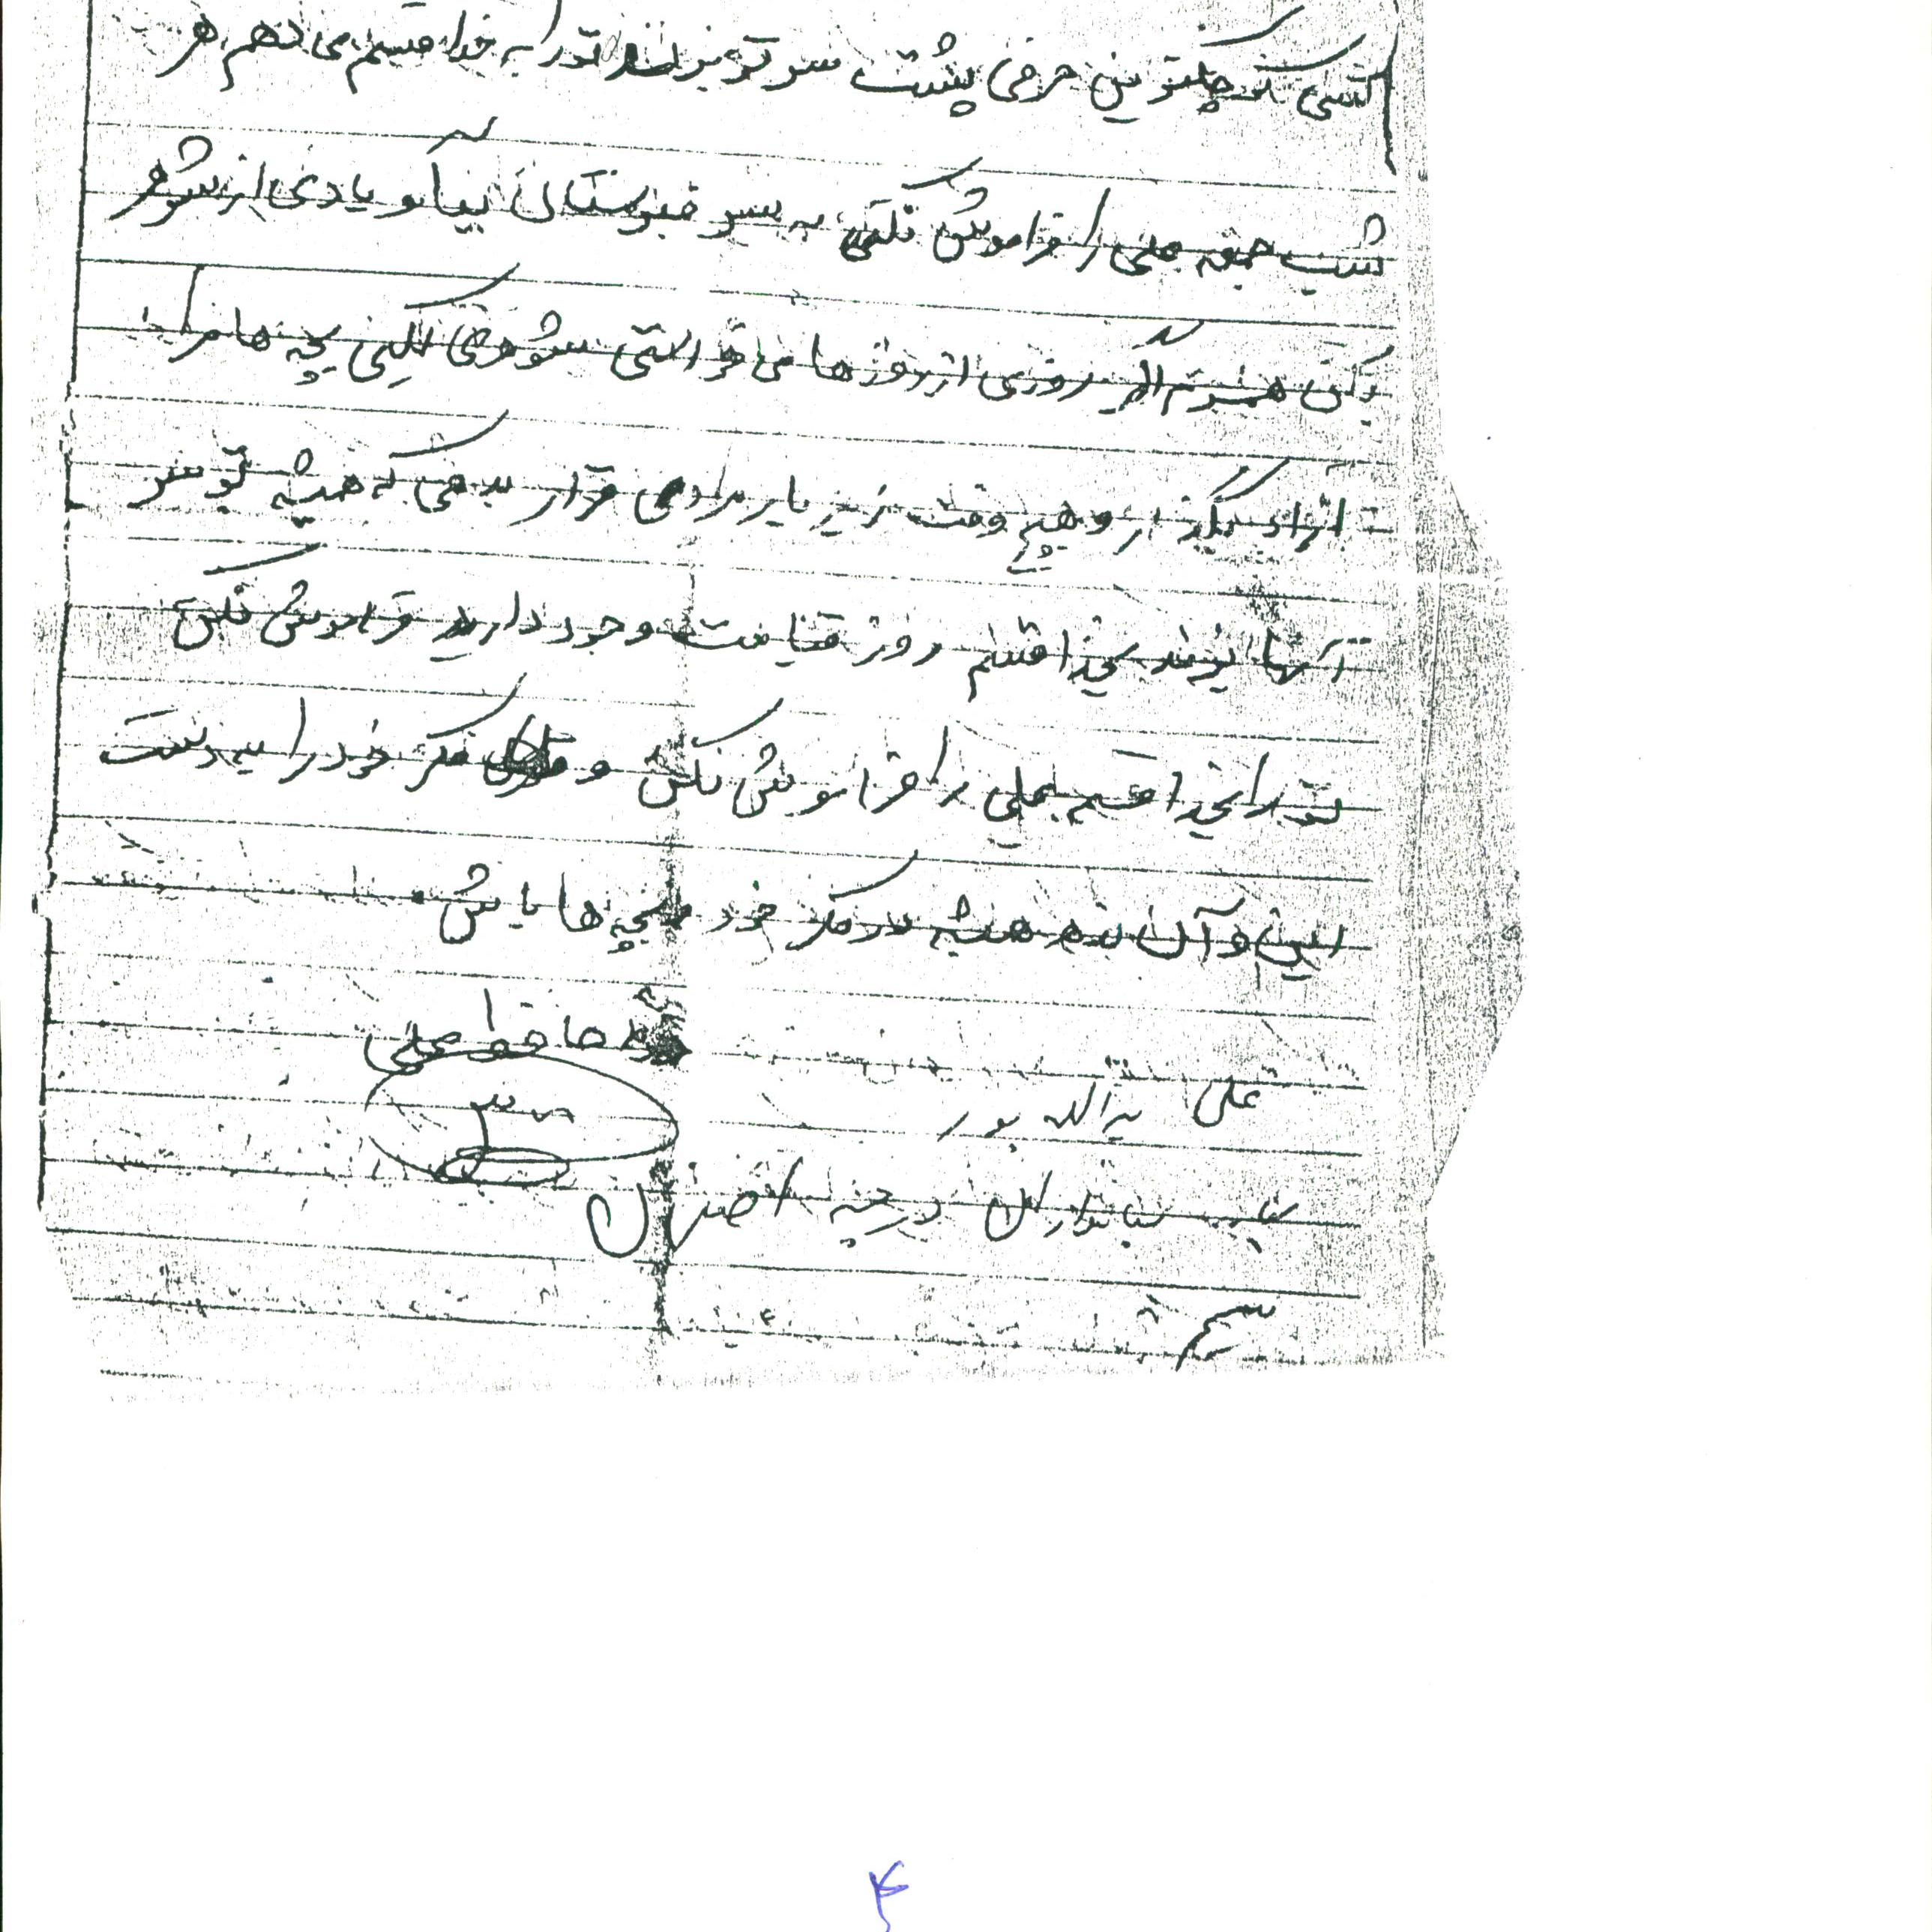 کسی کوچکترین حرفی پشت سر تو بزند تو را به خدا قسم می دهم هر
شب جمعه علی را فراموش نکنی به سر قبرستان بیا و یادی از شوهر
بکن همسرم اگر روزی از روزها می خواستی شوهری بکنی بچه ها مرا
آزاد بگذار و هیچ وقت زیر بار مرادی قرار بدهی که همیشه تو سر
آنها بزند بخدا قسم روز قیامت وجود دارد فراموش نکن
تو را بخدا قسم علی را فراموش نکن و فکر خود را به دست
این و آن نده همیشه در فکر خود و بچه ها باش
خدا حافظ علی
علی یدالله پور
درچه اصفهان
۴